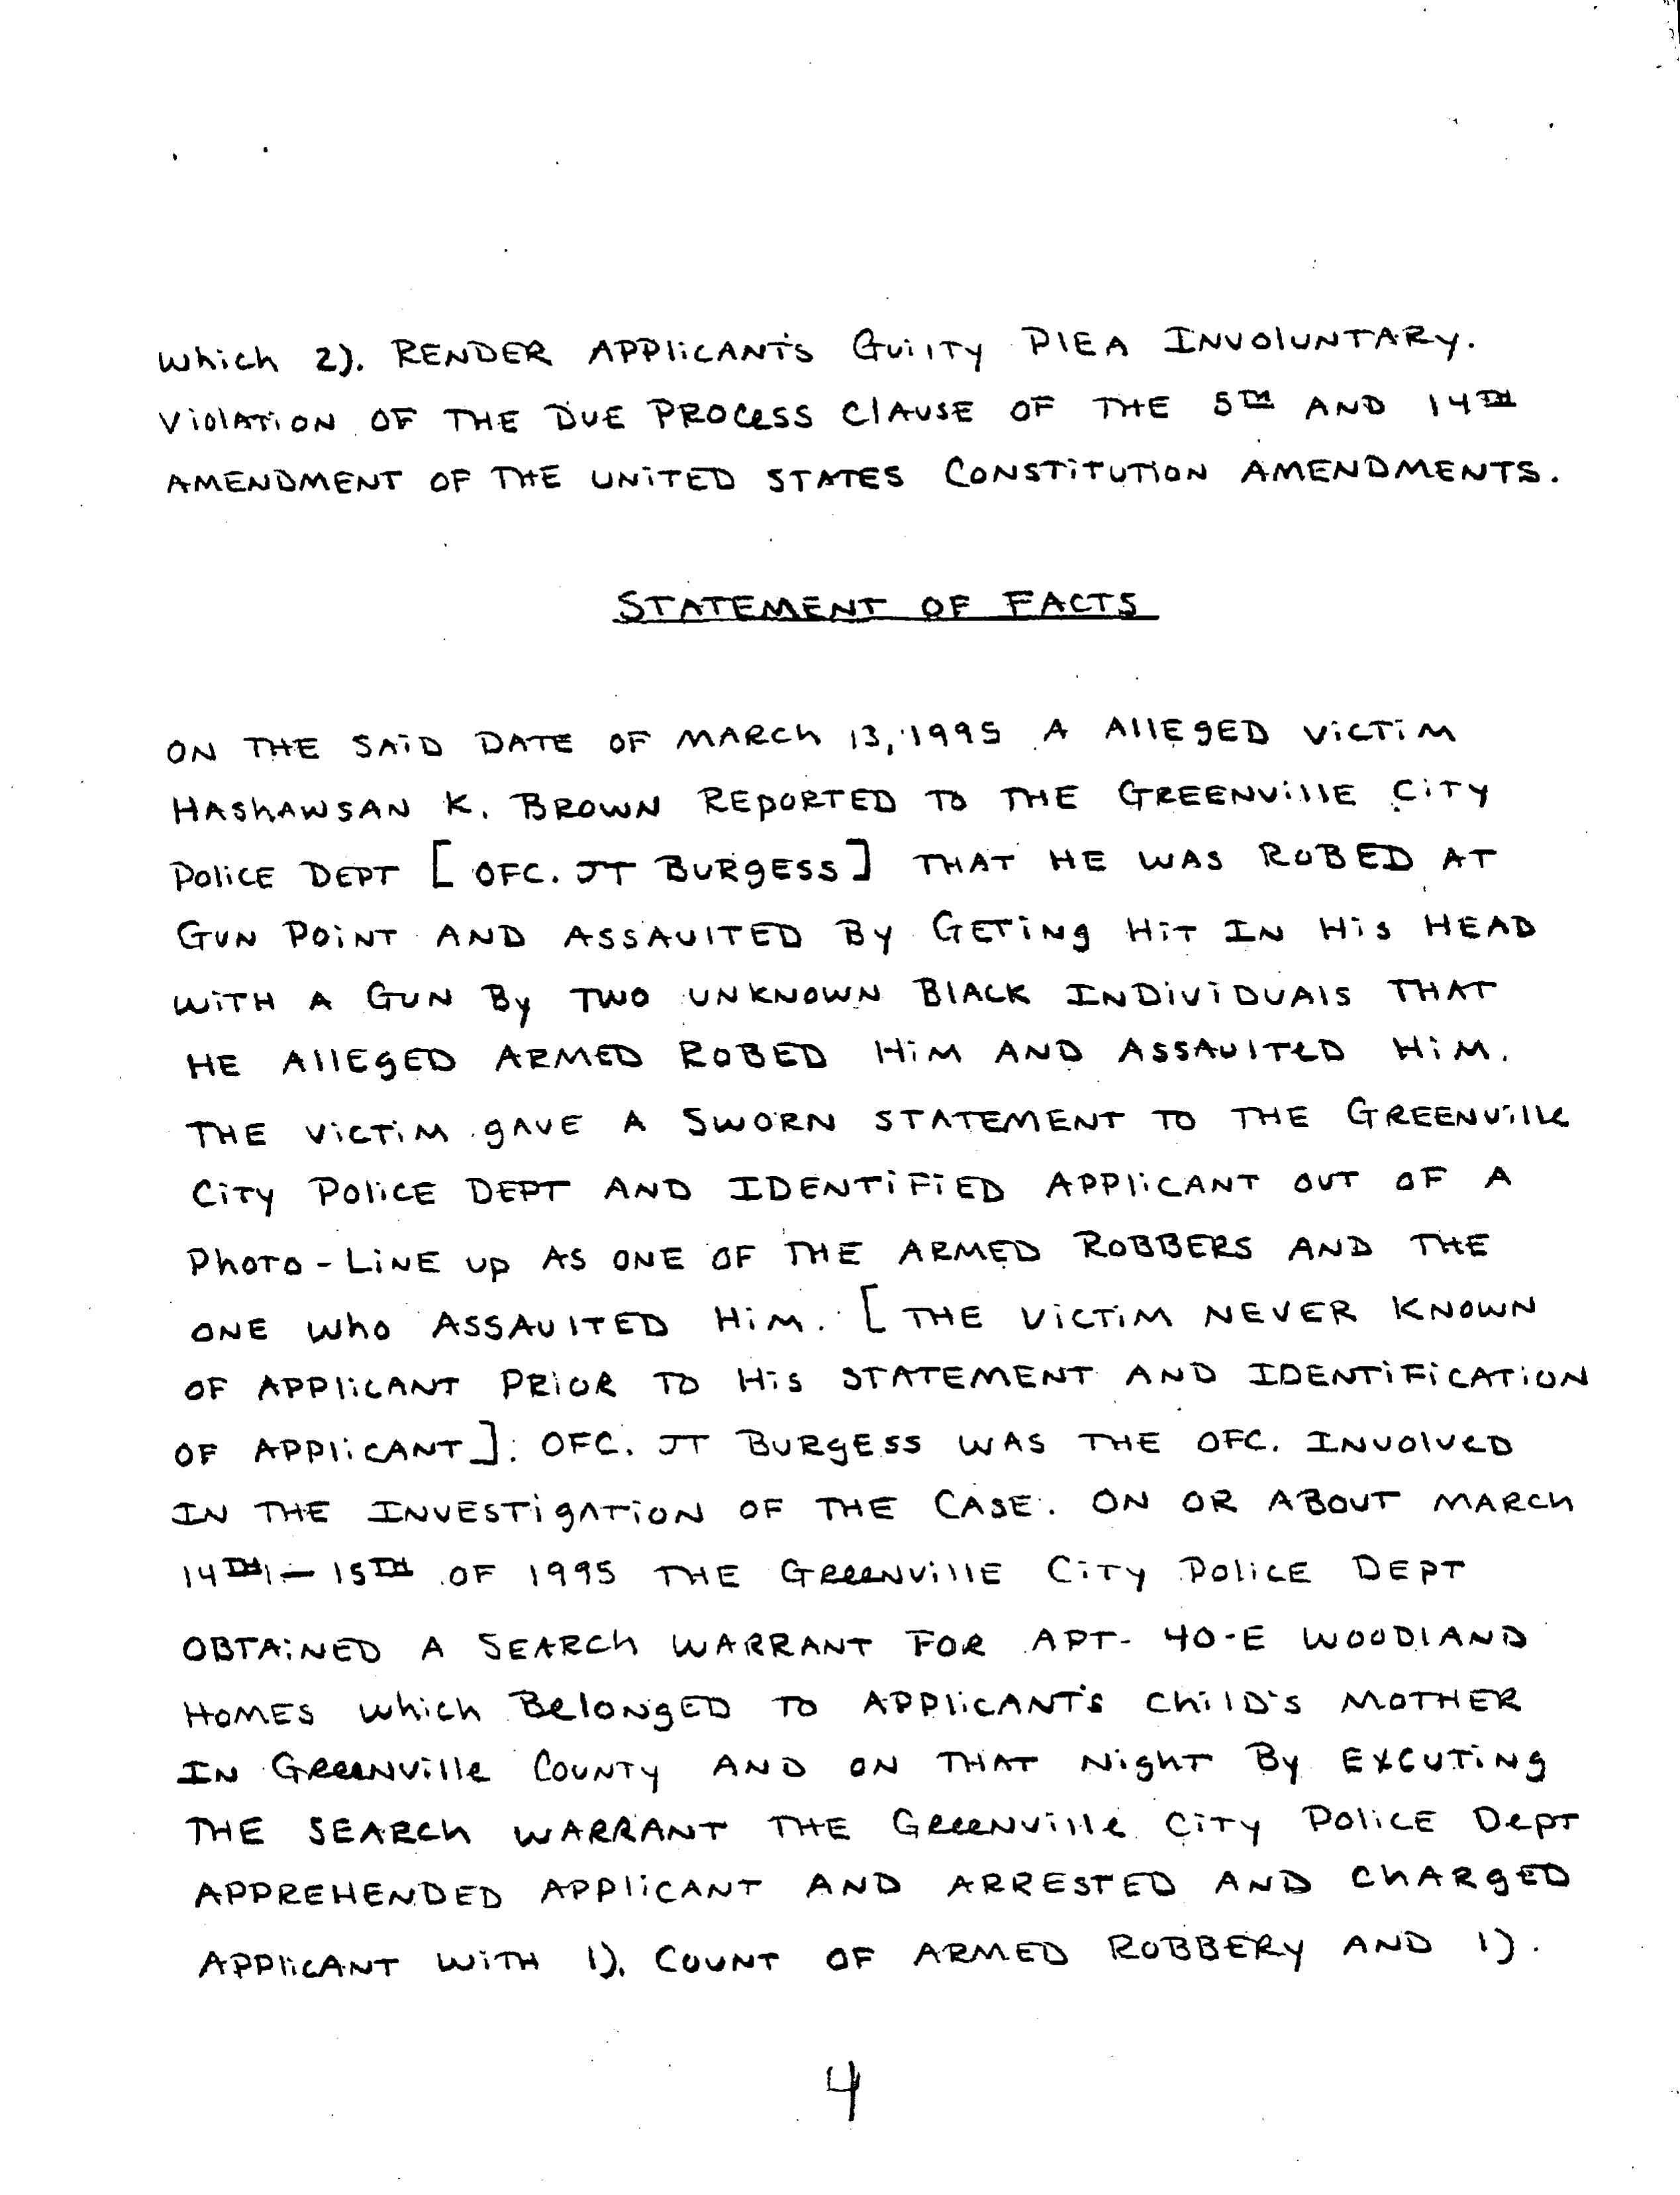 Which 2). RENDER APPLICANT'S GUILTY PLEA INVOLUNTARY.
VIOLATION OF THE DUE PROCESS CLAUSE OF THE 5TH AND 14TH
AMENDMENT OF THE UNITED STATES CONSTITUTION AMENDMENTS.
STATEMENT OF FACTS
ON THE SAID DATE OF MARCH 13, 1995 A ALLEGED VICTIM
HASHAWSAN K. BROWN REPORTED TO THE GREENVILLE CITY
POLICE DEPT [OFC. JT BURGESS] THAT HE WAS ROBED AT
GUN POINT AND ASSAULTED BY GETING HIT IN HIS HEAD
WITH A GUN BY TWO UNKNOWN BLACK INDIVIDUALS THAT
HE ALLEGED ARMED ROBED HIM AND ASSAULTED HIM.
THE VICTIM GAVE A SWORN STATEMENT TO THE GREENVILLE
CITY POLICE DEPT AND IDENTIFIED APPLICANT OUT OF A
PHOTO-LINE UP AS ONE OF THE ARMED ROBBERS AND THE
ONE WHO ASSAULTED HIM. [THE VICTIM NEVER KNOWN
OF APPLICANT PRIOR TO HIS STATEMENT AND IDENTIFICATION
OF APPLICANT]. OFC. JT BURGESS WAS THE OFC. INVOLVED
IN THE INVESTIGATION OF THE CASE. ON OR ABOUT MARCH
14TH - 15TH OF 1995 THE GREENVILLE CITY POLICE DEPT
OBTAINED A SEARCH WARRANT FOR APT- 40-E WOODLAND
HOMES WHICH BELONGED TO APPLICANT'S CHILD'S MOTHER
IN GREENVILLE COUNTY AND ON THAT NIGHT BY EXCUTING
THE SEARCH WARRANT THE GREENVILLE CITY POLICE DEPT
APPREHENDED APPLICANT AND ARRESTED AND CHARGED
APPLICANT WITH 1). COUNT OF ARMED ROBBERY AND 1).
4